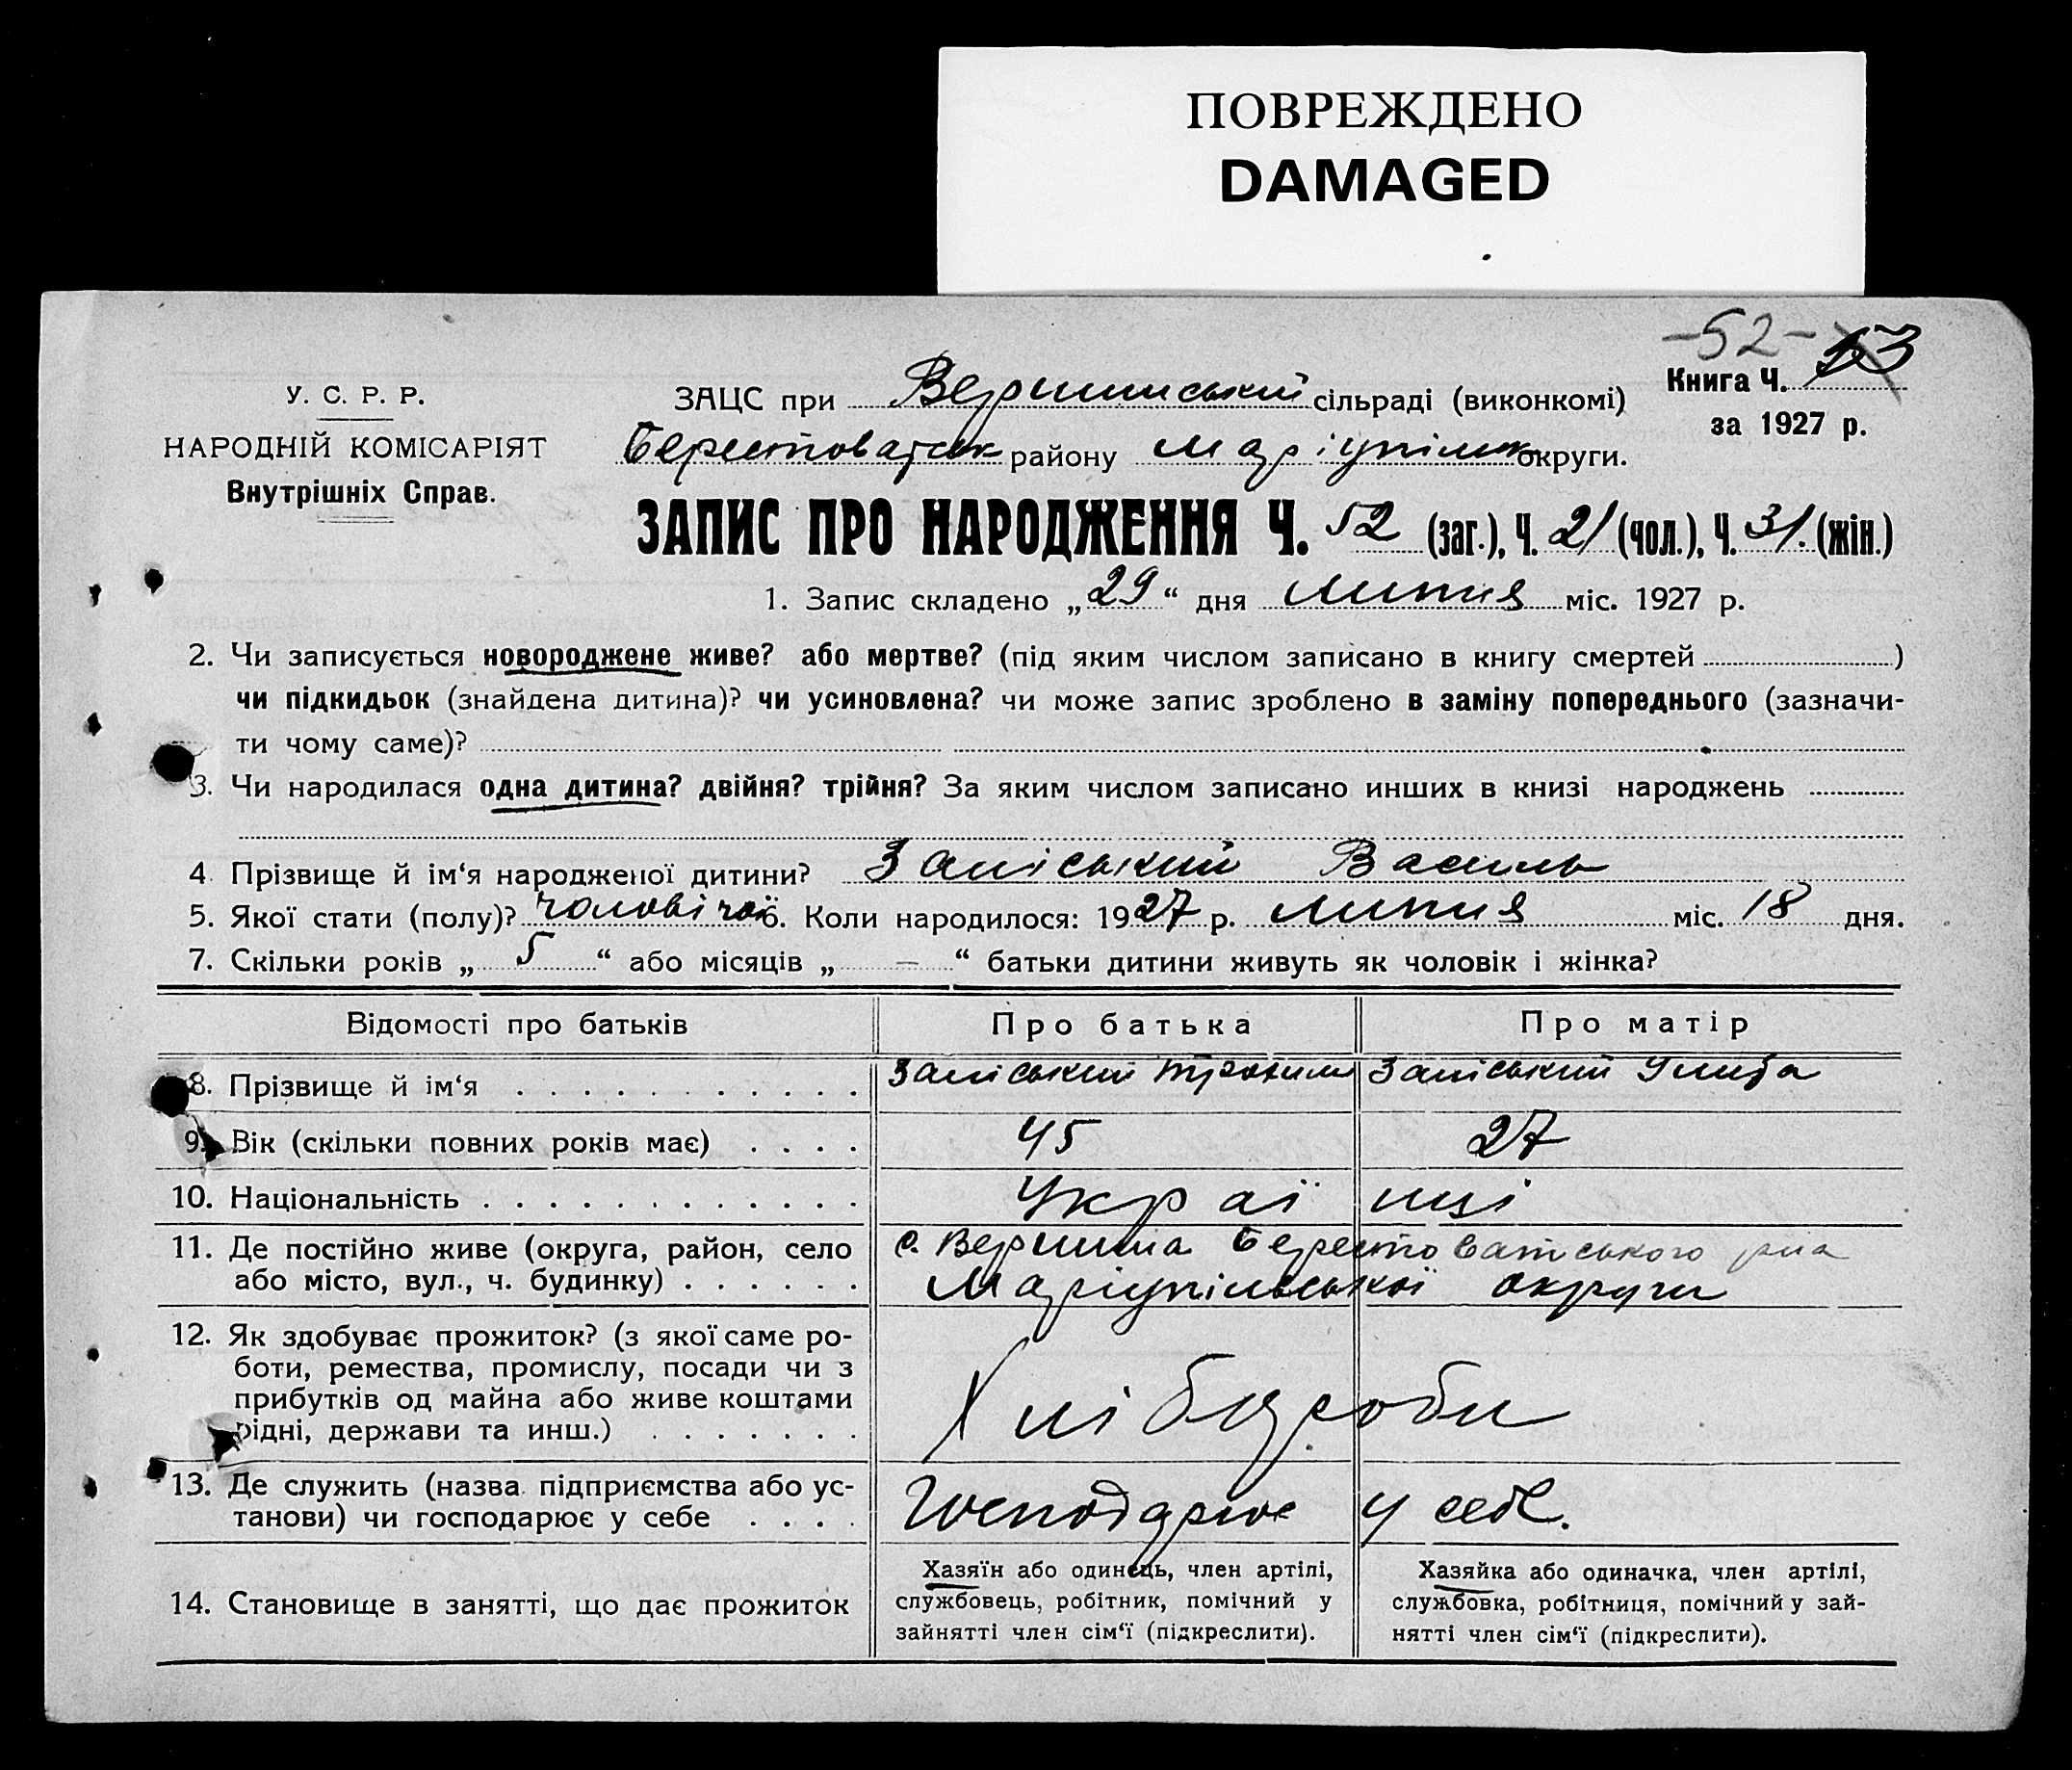 ПОВРЕЖДЕНО
DAMAGED
-52- 13
У. С. Р. Р.
НАРОДНІЙ КОМІСАРІЯТ
Внутрішніх Справ.
ЗАЦС при Вершинський сільраді (виконкомі)
Книга Ч.
за 1927 р.
району округи.
ЗАПИС ПРО НАРОДЖЕННЯ Ч. 52 (заг.), Ч. 21 (чол.), Ч. 31. (жін.)
1. Запис складено „29“ дня липня міс. 1927 р.
2. Чи записується новороджене живе? або мертве? (під яким числом записано в книгу смертей )
чи підкидьок (знайдена дитина)? чи усиновлена? чи може запис зроблено в заміну попереднього (зазначи-
ти чому саме)?
3. Чи народилася одна дитина? двійня? трійня? За яким числом записано инших в книзі народжень
4. Прізвище й ім‘я народженої дитини? Василь
5. Якої стати (полу)? чоловічої 6. Коли народилося: 1927 р. липня міс. 18 дня.
7. Скільки років „ 5 “ або місяців „ – “ батьки дитини живуть як чоловік і жінка?
Відомості про батьків Про батька Про матір
8. Прізвище й ім‘я
9. Вік (скільки повних років має) 45 27
10. Національність Українці
11. Де постійно живе (округа, район, село с. Вершина Берестоватського рна
або місто, вул., ч. будинку) Маріупільської округи
12. Як здобуває прожиток? (з якої саме ро-
боти, ремества, промислу, посади чи з
прибутків од майна або живе коштами Хлібороби
рідні, держави та инш.)
13. Де служить (назва підприємства або ус-
танови) чи господарює у себе Господарює у себе.
14. Становище в занятті, що дає прожиток
Хазяїн або одинець, член артілі,
службовець, робітник, помічний у
зайнятті член сім‘ї (підкреслити).
Хазяйка або одиначка, член артілі,
службовка, робітниця, помічний у зай-
нятті член сім‘ї (підкреслити).